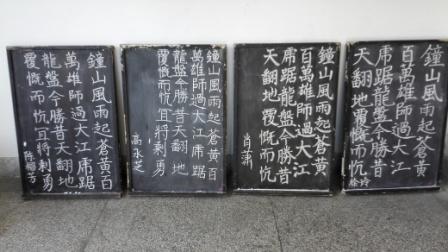 鐘山風雨起蒼黃百
萬雄師過大江虎踞
龍盤今勝昔天翻地
覆慨而忼宜將剩勇
鐘山風雨起蒼黃百
萬雄師過大江虎踞
龍盤今勝昔天翻地
覆慨而忼宜將剩勇
高永芝
鐘山風雨起蒼黃
百萬雄師過大江
虎踞龍盤今勝昔
天翻地覆慨而忼
鐘山風雨起蒼黃
百萬雄師過大江
虎踞龍盤今勝昔
天翻地覆慨而忼
徐玲